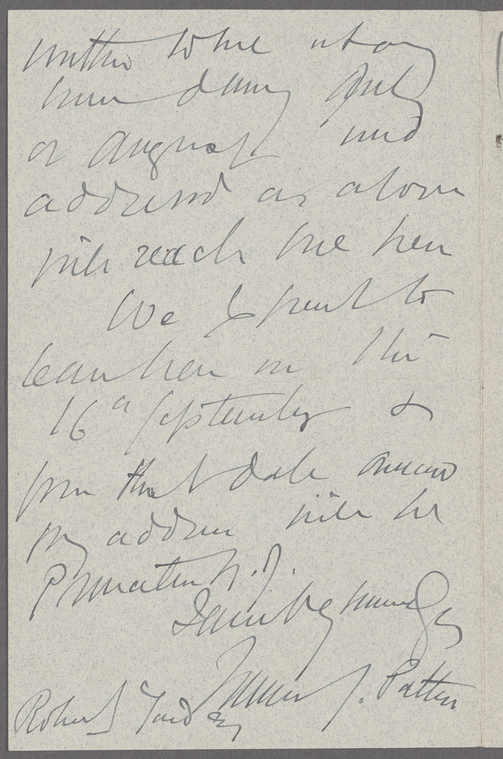 written to me at any
time during July
or August and
addressed as above
will reach me here
We expect to
leave here on the
16th September &
from that date on
my address will be
Princeton N.J.
I am
Yours
Robert